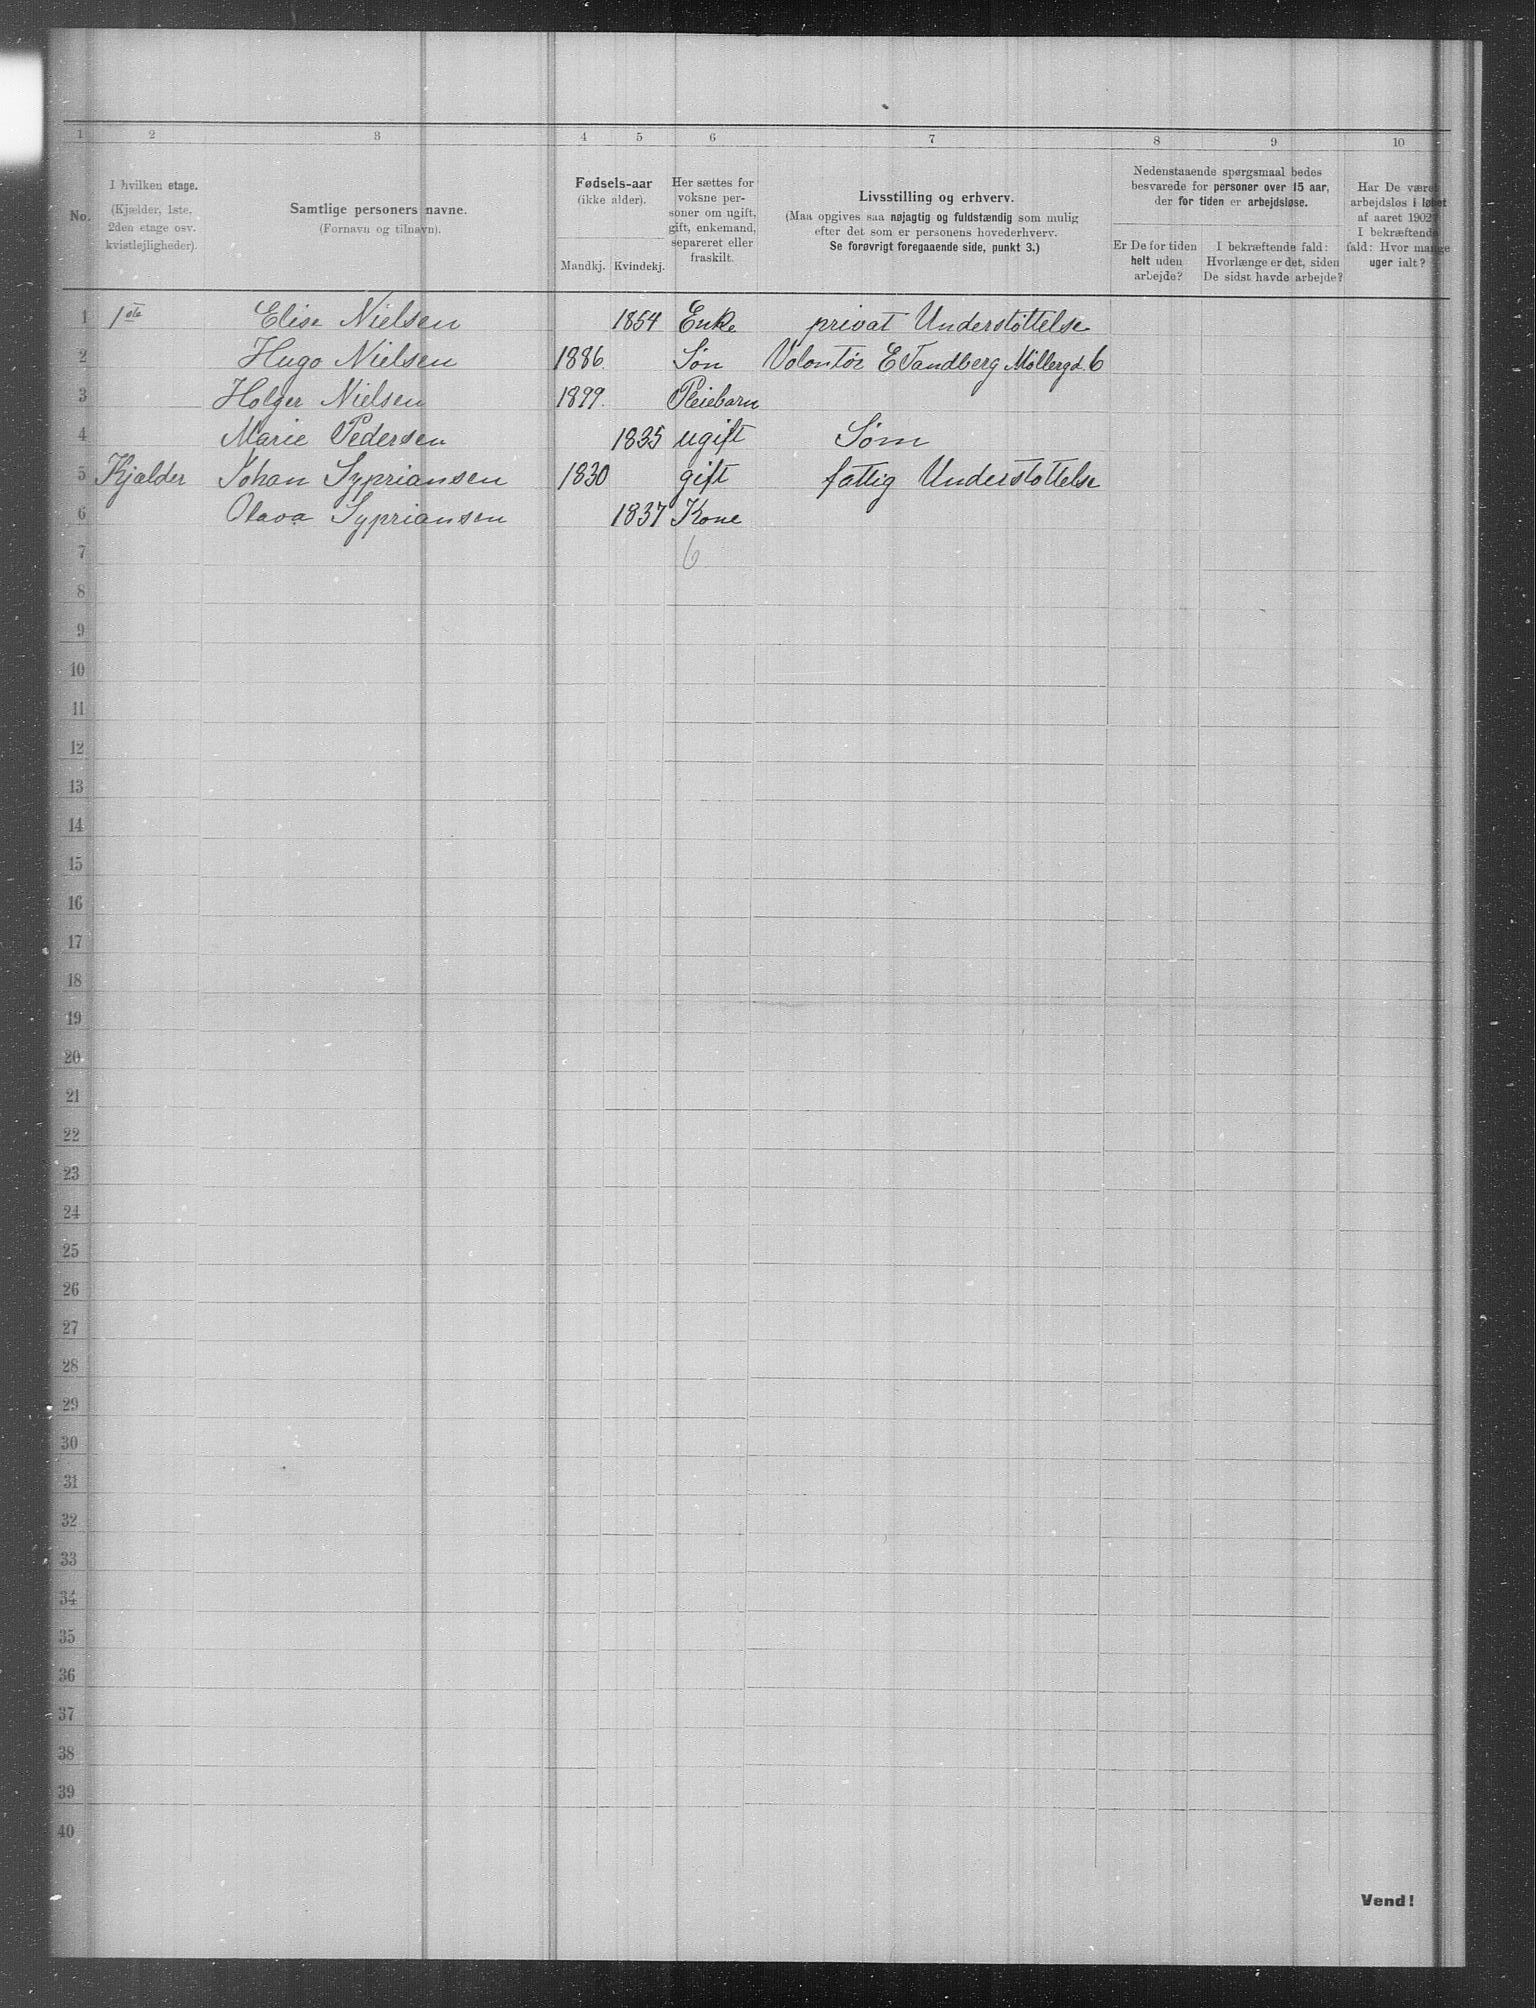 1 2 3 4 5 6 7 8 9 10
No.
I hvilken etage.
(Kjælder, 1ste,
2den etage osv.
kvistlejligheder).
Samtlige personers navne.
(Fornavn og tilnavn).
Fødsels-aar
(ikke alder).
Mandkj. Kvindekj.
Her sættes for
voksne per-
soner om ugift,
gift, enkemand,
separeret eller
fraskilt.
Livsstilling og erhverv.
(Maa opgives saa nøjagtig og fuldstændig som mulig
efter det som er personens hovederhverv.
Se forøvrigt foregaaende side, punkt 3.)
Nedenstaaende spørgsmaal bedes
besvarede for personer over 15 aar,
der for tiden er arbejdsløse.
Er De for tiden
helt uden
arbejde?
I bekræftende fald:
Hvorlænge er det, siden
De sidst havde arbejde?
Har De været
arbejdsløs i løbet
af aaret 1902?
I bekræftende
fald: Hvor mange
uger ialt?
1 1ste Elise Nielsen 1854 Enke privat Understøttelse
2 Hugo Nielsen 1886. Søn Volontør E Tandberg Møllergd. 6
3 Holger Nielsen 1899. Pleiebarn
4 Marie Pedersen 1835 ugift Søm
5 Kjælder Johan Sypriansen 1830 gift fattig Understøttelse
6 Olava Sypriansen 1837 Kone
7 6
8
9
10
11
12
13
14
15
16
17
18
19
20
21
22
23
24
25
26
27
28
29
30
31
32
33
34
35
36
37
38
39
40
Vend!